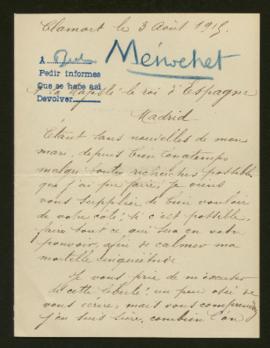 Clamart le 3 Août 1915
A
Menochet
Pedir informes
Que se hace así
Devolver
Sa Majesté le roi d'Espagne
Madrid
Étant sans nouvelles de mon
mari, depuis bien longtemps
malgré toutes recherches possible
que j'ai pu faire, je viens
vous supplier de bien vouloir
de votre coté, si c'est possible
faire tout ce qui sera en votre
pouvoir, afin de calmer ma
mortelle inquiétude
Je vous prie de m'excuser
de cette liberté, un peu osée de
vous écrire, mais vous comprenez
j'en suis sûre, combien l'on